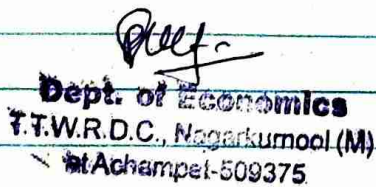 Dept. of Economics
T.T.W.R.D.C., Nagarkurnool (M)
at Achampet-509375